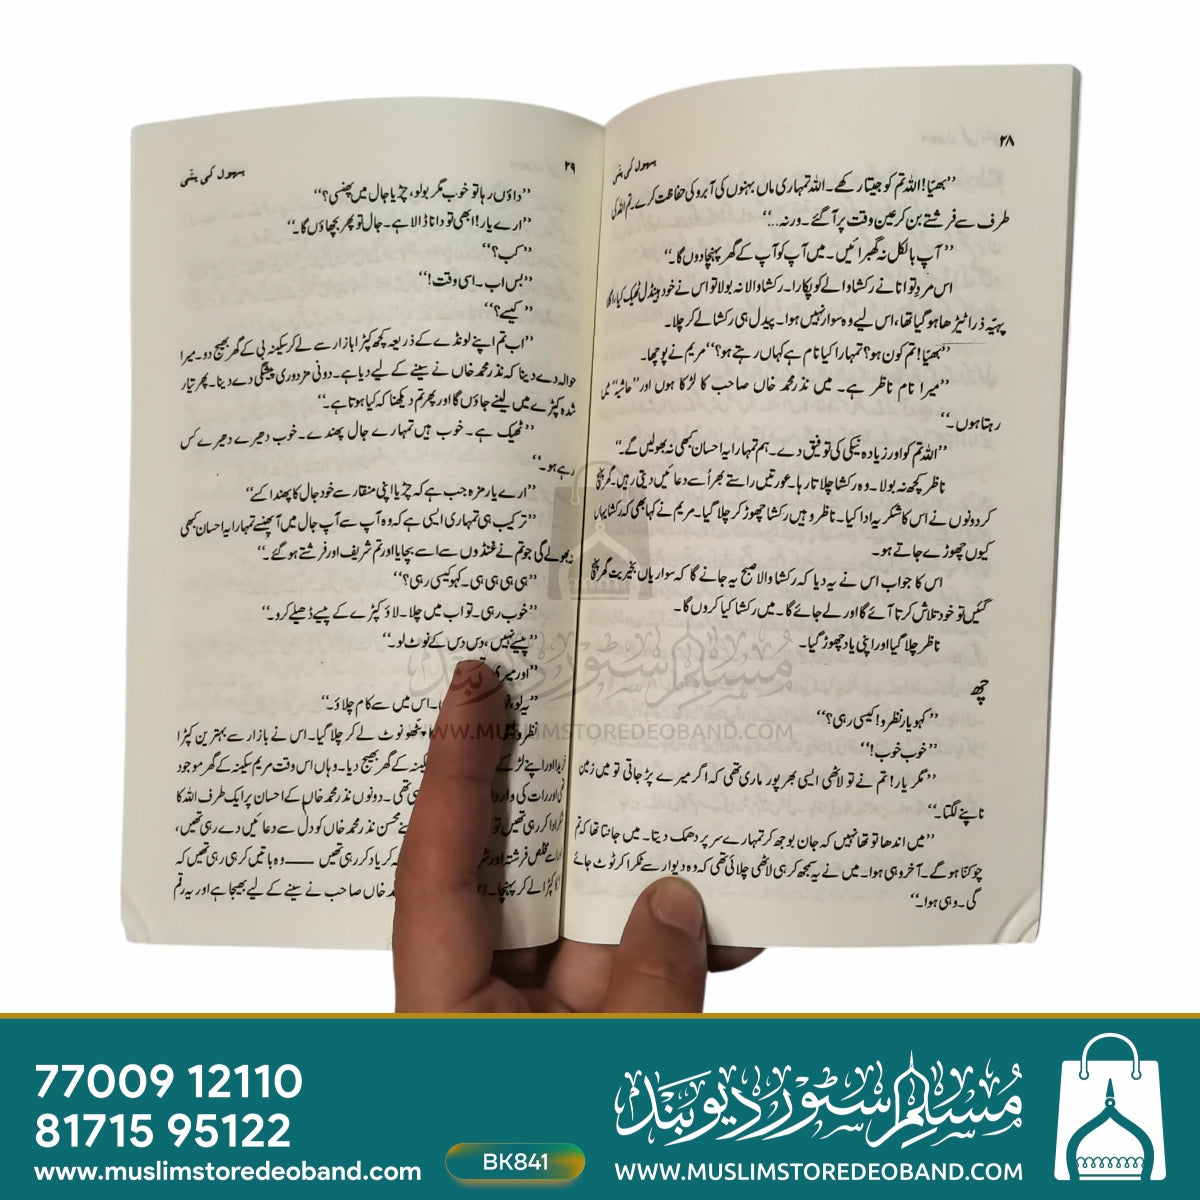 ۲۸
پھول کی پتّی
’’بھیّا! اللہ تم کو جیتا رکھے۔ اللہ تمہاری ماں بہنوں کی آبرو کی حفاظت کرے۔ تم اللہ کی
طرف سے فرشتے بن کر عین وقت پر آگئے۔ ورنہ...‘‘
’’آپ بالکل نہ گھبرائیں۔ میں آپ کو آپ کے گھر پہنچا دوں گا۔‘‘
اس مردِ توانا نے رکشا والے کو پکارا۔ رکشا والا نہ بولا تو اس نے خود ہینڈل ٹھیک کیا، اگلا
پہیّہ ذرا ٹیڑھا ہو گیا تھا، اس لیے وہ سوار نہیں ہوا۔ پیدل ہی رکشا لے کر چلا۔
’’بھیّا! تم کون ہو؟ تمہارا کیا نام ہے کہاں رہتے ہو؟‘‘ مریم نے پوچھا۔
’’میرا نام ناظر ہے۔ میں نذر محمد خاں صاحب کا لڑکا ہوں اور ’’حاشیہ‘‘ میں
رہتا ہوں۔‘‘
’’اللہ تم کو اور زیادہ نیکی کی توفیق دے۔ ہم تمہارا یہ احسان کبھی نہ بھولیں گے۔‘‘
ناظر کچھ نہ بولا۔ وہ رکشا چلاتا رہا۔ عورتیں راستے بھر اُسے دعائیں دیتی رہیں۔ گھر پہنچ
کر دونوں نے اس کا شکریہ ادا کیا۔ ناظر وہیں رکشا چھوڑ کر چلا گیا۔ مریم نے کہا بھی کہ رکشا یہاں
کیوں چھوڑے جاتے ہو۔
اس کا جواب اس نے یہ دیا کہ رکشا والا صبح یہ جانے گا کہ سواریاں بخیریت گھر پہنچ
گئیں تو خود تلاش کرتا آئے گا اور لے جائے گا۔ میں رکشا کیا کروں گا۔
ناظر چلا گیا اور اپنی یاد چھوڑ گیا۔
چھ
’’کہو یار نظرو! کیسی رہی؟‘‘
’’خوب خوب!‘‘
’’مگر یار! تم نے تو لاٹھی ایسی بھرپور ماری تھی کہ اگر میرے پڑ جاتی تو میں زمین
ناپنے لگتا۔‘‘
’’میں اندھا تو تھا نہیں کہ جان بوجھ کر تمہارے سر پر دھمک دیتا۔ میں جانتا تھا کہ تم
چوکنا ہو گے۔ آخر وہی ہوا۔ میں نے یہ سمجھ کر ہی لاٹھی چلائی تھی کہ وہ دیوار سے ٹکرا کر ٹوٹ جائے
گی۔ وہی ہوا۔‘‘
۲۹
پھول کی پتّی
’’داؤں رہا تو خوب مگر بولو، چڑیا جال میں پھنسی؟‘‘
’’ارے یار! ابھی تو دانا ڈالا ہے۔ جال تو پھر بچھاؤں گا۔‘‘
’’کب؟‘‘
’’بس اب۔ اسی وقت!‘‘
’’کیسے؟‘‘
’’اب تم اپنے لونڈے کے ذریعہ کچھ کپڑا بازار سے لے کر سکینہ بی کے گھر بھیج دو۔ میرا
حوالہ دے دینا کہ نذر محمد خاں نے سینے کے لیے دیا ہے۔ دونی مزدوری پیشگی دے دینا۔ پھر تیار
شدہ کپڑے میں لینے جاؤں گا اور پھر تم دیکھنا کہ کیا ہوتا ہے۔‘‘
’’ٹھیک ہے۔ خوب ہیں تمہارے جال پھندے۔ خوب دھیرے دھیرے کس
رہے ہو۔‘‘
’’ارے یار مزہ جب ہے کہ چڑیا اپنی منقار سے خود جال کا پھندا کسے‘‘
’’ترکیب ہی تمہاری ایسی ہے کہ وہ آپ سے آپ جال میں آ پھنسے تمہارا یہ احسان کبھی
نہ بھولے گی جو تم نے غنڈوں سے اسے بچایا اور تم شریف اور فرشتے ہو گئے۔‘‘
’’ہی ہی ہی ہی۔ کہو کیسی رہی؟‘‘
’’خوب رہی۔ تو اب میں چلا۔ لاؤ کپڑے کے پیسے ڈھیلے کرو۔
’’پیسے نہیں، دس دس کے نوٹ لو۔‘‘
’’اور میری
’’یہ لو، اس میں سے کام چلاؤ۔‘‘
نظرو پٹھو نوٹ لے کر چلا گیا۔ اس نے بازار سے بہترین کپڑا
خریدا اور اپنے لڑکے سکینہ کے گھر بھیج دیا۔ وہاں اس وقت مریم سکینہ کے گھر موجود
تھی اور رات کی واردات رہی تھی۔ دونوں نذر محمد خاں کے احسان پر ایک طرف اللہ کا
شکر ادا کر رہی تھیں تو اپنے محسن نذر محمد خاں کو دل سے دعائیں دے رہی تھیں،
اور اسے مخلص فرشتہ اور کہہ کر یاد کر رہی تھیں ــــ وہ یہ باتیں کر ہی رہی تھیں کہ
لڑکا کپڑا لے کر پہنچا۔ محمد خاں صاحب نے سینے کے لیے بھیجا ہے اور یہ رقم
مسلم سٹور دیوبند
WWW.MUSLIMSTOREDEOBAND.COM
77009 12110
81715 95122
www.muslimstoredeoband.com
BK841
مسلم سٹور دیوبند
WWW.MUSLIMSTOREDEOBAND.COM